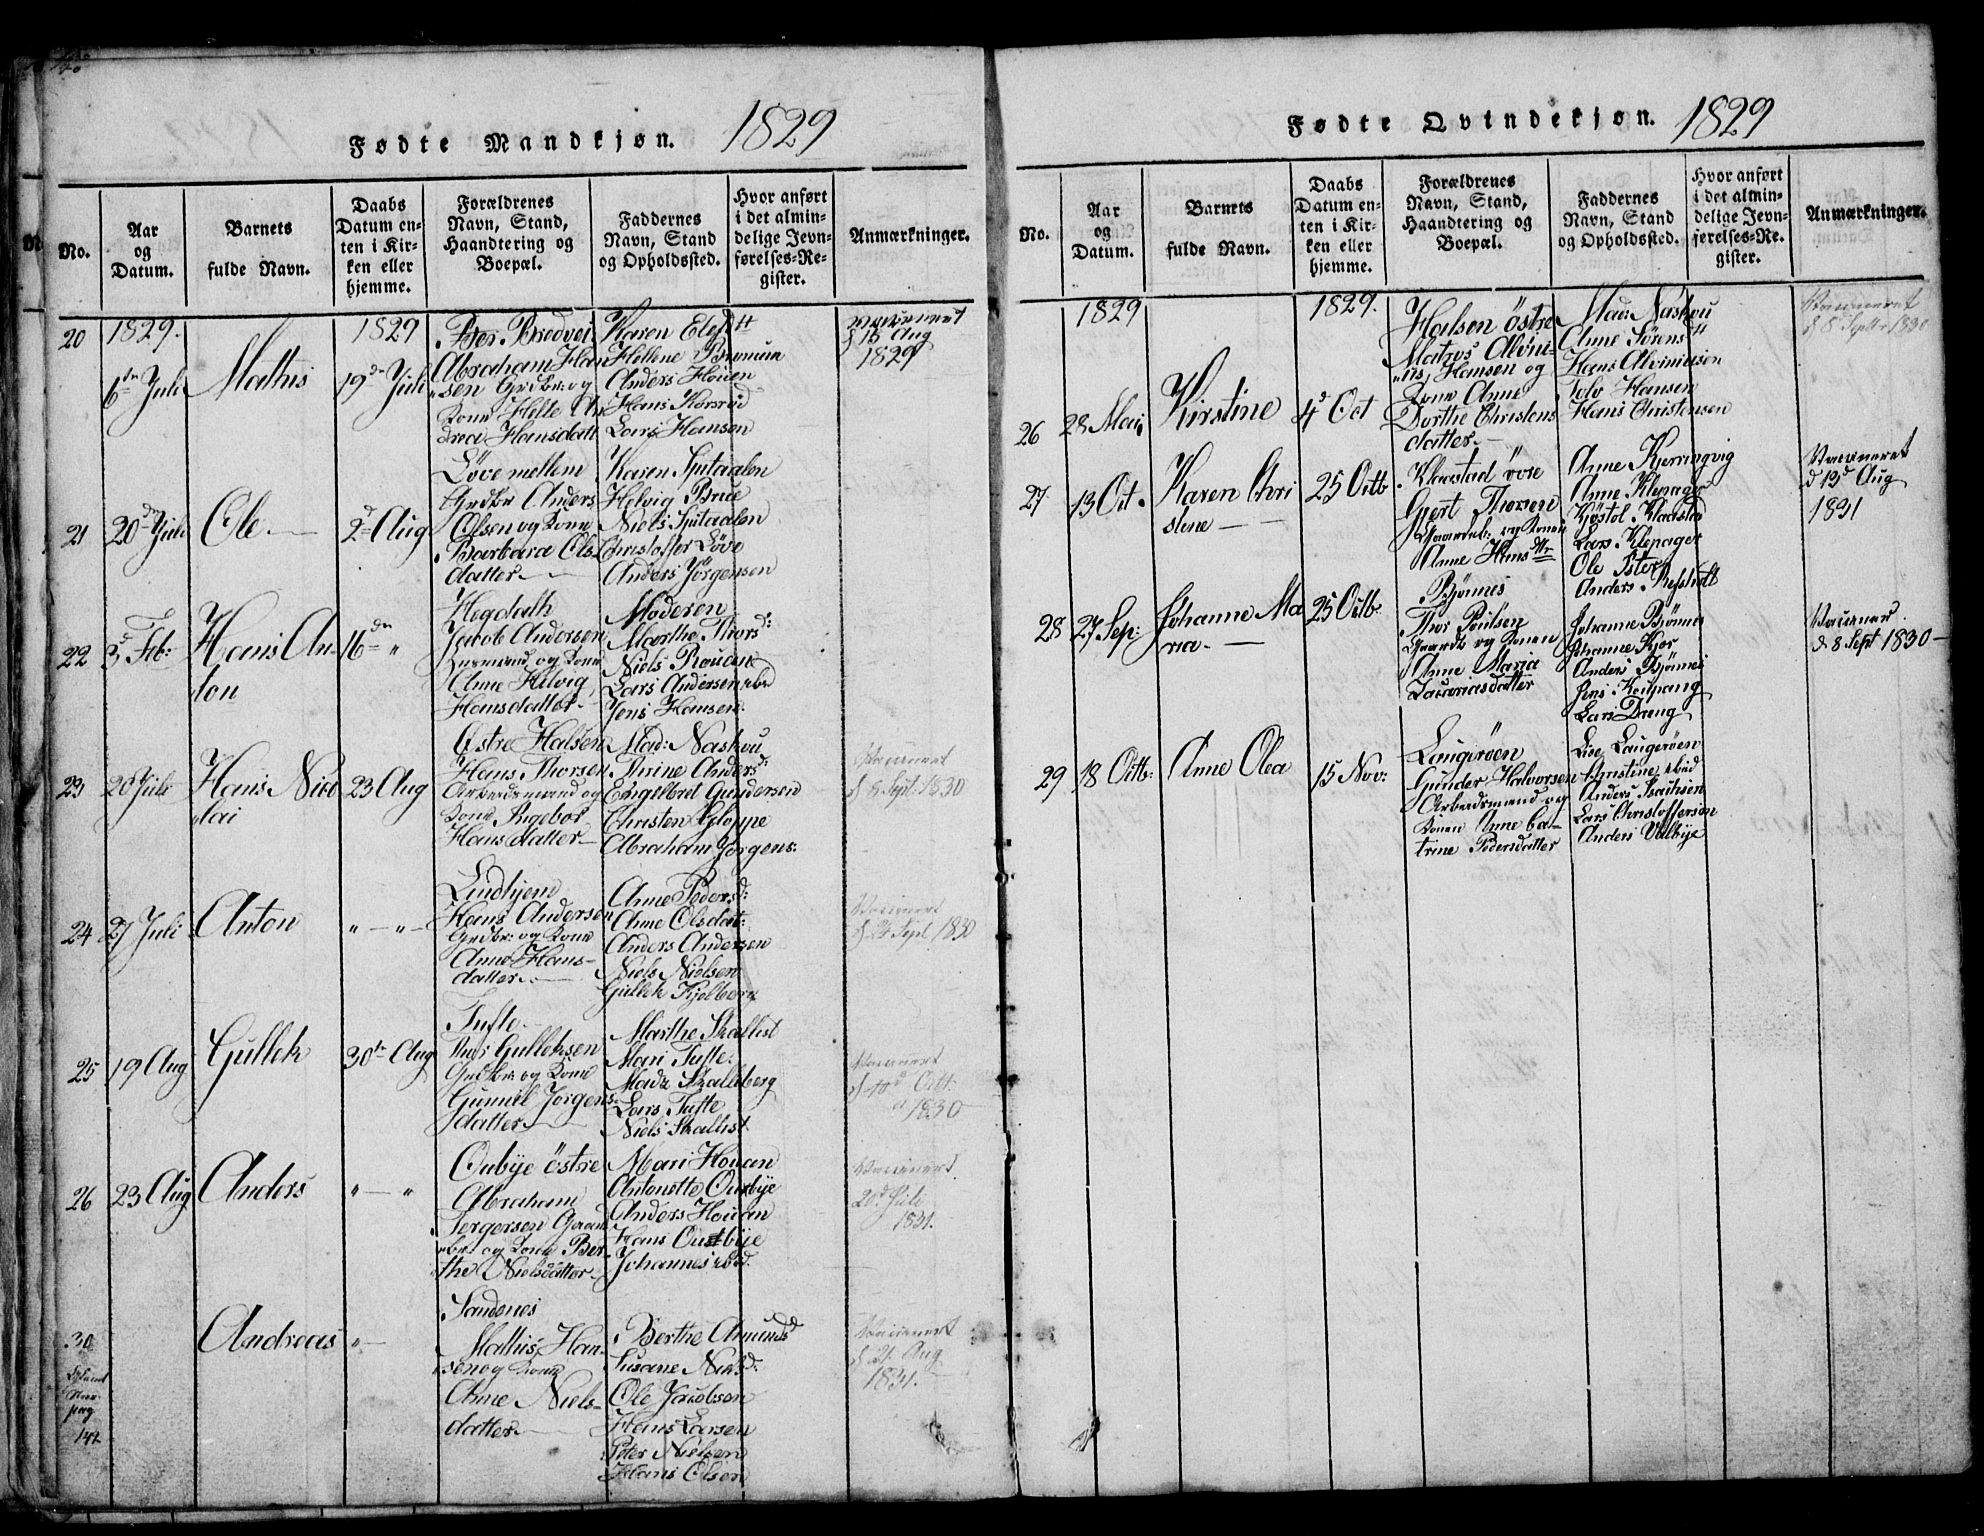 140
Fødte Mandkjøn. 1829
No.
Aar
og
Datum.
Barnets
fulde Navn.
Daabs
Datum en-
ten i Kir-
ken eller
hjemme.
Forældrenes
Navn, Stand,
Haandtering og
Boepæl.
Faddernes
Navn, Stand
og Opholdssted.
Hvor anført
i det almin-
delige Jevn-
førelses-Re-
gister.
Anmærkninger.
20
1829.
6te Juli
Mathis
1829
19de Juli
Abraham Han
sen Grdbr: og
Kone Helle An
drea Hansdatt
Karen
Hellene
Anders Houen
Hans Korsrød
Lars Hansen
15 Aug
1829
21
20de Juli
Ole
2d Aug
Løve mellem
Grdbr Anders
Olsen og Kone
Barbara Ols
datter
Karen Spitaalen
Helvig Brue
Niels Spitaalen
Christoffer Løve
Anders Jörgensen
22
3d Feb:
Hans An-
ton
16de "
Hegdath
Jacob Andersen
Huusmand og Kone
Anne Helvig
Hansdatter
Moderen
Marthe Thorsd:
Niels Rouen
Lars Andersen ibd
Jens Hansen
23
20 Juli
Hans Nico
lai
23 Aug
Østre Halsen
Hans Thorsen
Arbeidsmand og
Kone Ingebor
Hansdatter
Mad: Naskou
Thrine Andersd:
Engelbret Gundersen
Christen Gloppe
Abraham Jörgens:
Vaccineret
d 8 Sept: 1830
24
27 Juli
Anton
" — " —
Lindhjem
Hans Andersen
Grdbr: og Kone
Anne Hans-
datter
Anne Pedersd:
Anne Olsdat:
Anders Andersen
Niels Nielsen
Gullek Kjelberg
Vaccineret
d 24 Sept 1830
25
19 Aug
Gullek
30te Aug
Tufte
Gulleksen
Grdbr og Kone
Gunnil Jörgens-
datter
Marthe Skallist
Mari Tufte
Madz Skallberg
Lars Tufte
Niels Skallist
Vaccineret
d 10d Octb:
1830
26
23 Aug
Anders
" — "
Oubÿe östre
Abraham
Jörgersen Gaard
br og Kone Ber
the Nielsdatter
Mari Houen
Antonette Oubÿe
Anders Houen
Hans Oustbÿe
Johannes ibd.
Vaccineret
20d Juli
1831.
30
142
Andreas
" —
Sandenes
Mathis Han
sen og Kone
Anne Niels-
datter
Berthe Amundsd
Susane Nielsd:
Ole Jacobsen
Hans Larsen
Peter Nielsen
Hans Olsen
Vaccineret
d 21 Aug
1831.
Fødte Qvindekjøn. 1829
No.
Aar
og
Datum.
Barnets
fulde Navn.
Daabs
Datum en-
ten i Kir-
ken eller
hjemme.
Forældrenes
Navn, Stand,
Haandtering og
Boepæl.
Faddernes
Navn, Stand
og Opholdssted.
Hvor anført
i det almin-
delige Jevn-
førelses-Re-
gister.
Anmærkninger.
1829
1829.
26
28 Mai
Kirstine
4d Oct
Halsen östre
Matros Alvini-
us Hansen og
Kone Anne
Dorthe Christens
datter
Mad: Naskou
Anne Sörens
Hans Alviniusen
Tolv Hansen
Hans Christensen
Vaccineret
d 8 Septbr 1830
27
13 Oct.
Karen Chri
stine
25 Octb
Klaastad övre
Gjert Thorsen
Gaardb: og Konen
Anne Hans Dtr
Anne Kjerringvig
Anne Klepager
Kjöstol Klaastad
Lars Klepager
Ole Ister
Anders Refsholt
Vaccineret
d 13d Aug
1831
28
27 Sep:
Johanne Ma
ria
25 Octb:
Bjönnes
Thor Poulsen
Gaardb og Konen
Anne Maria
Zacariasdatter
Johanne Bjönnes
Johanne Kjær
Anders Bjönnes
Jens Kaupang
Lars Dreng
Vaccineret
d 8 Sept 1830
29
18 Octb:
Anne Olea
15 Nov:
Laugeröen
Gunder Halvorsen
Arbeidsmand og
Konen Anne Ca-
trine Pedersdatter
Lise Laugeröen
Christine ibid
Anders Isachsen
Lars Christoffersen
Anders Valbÿe